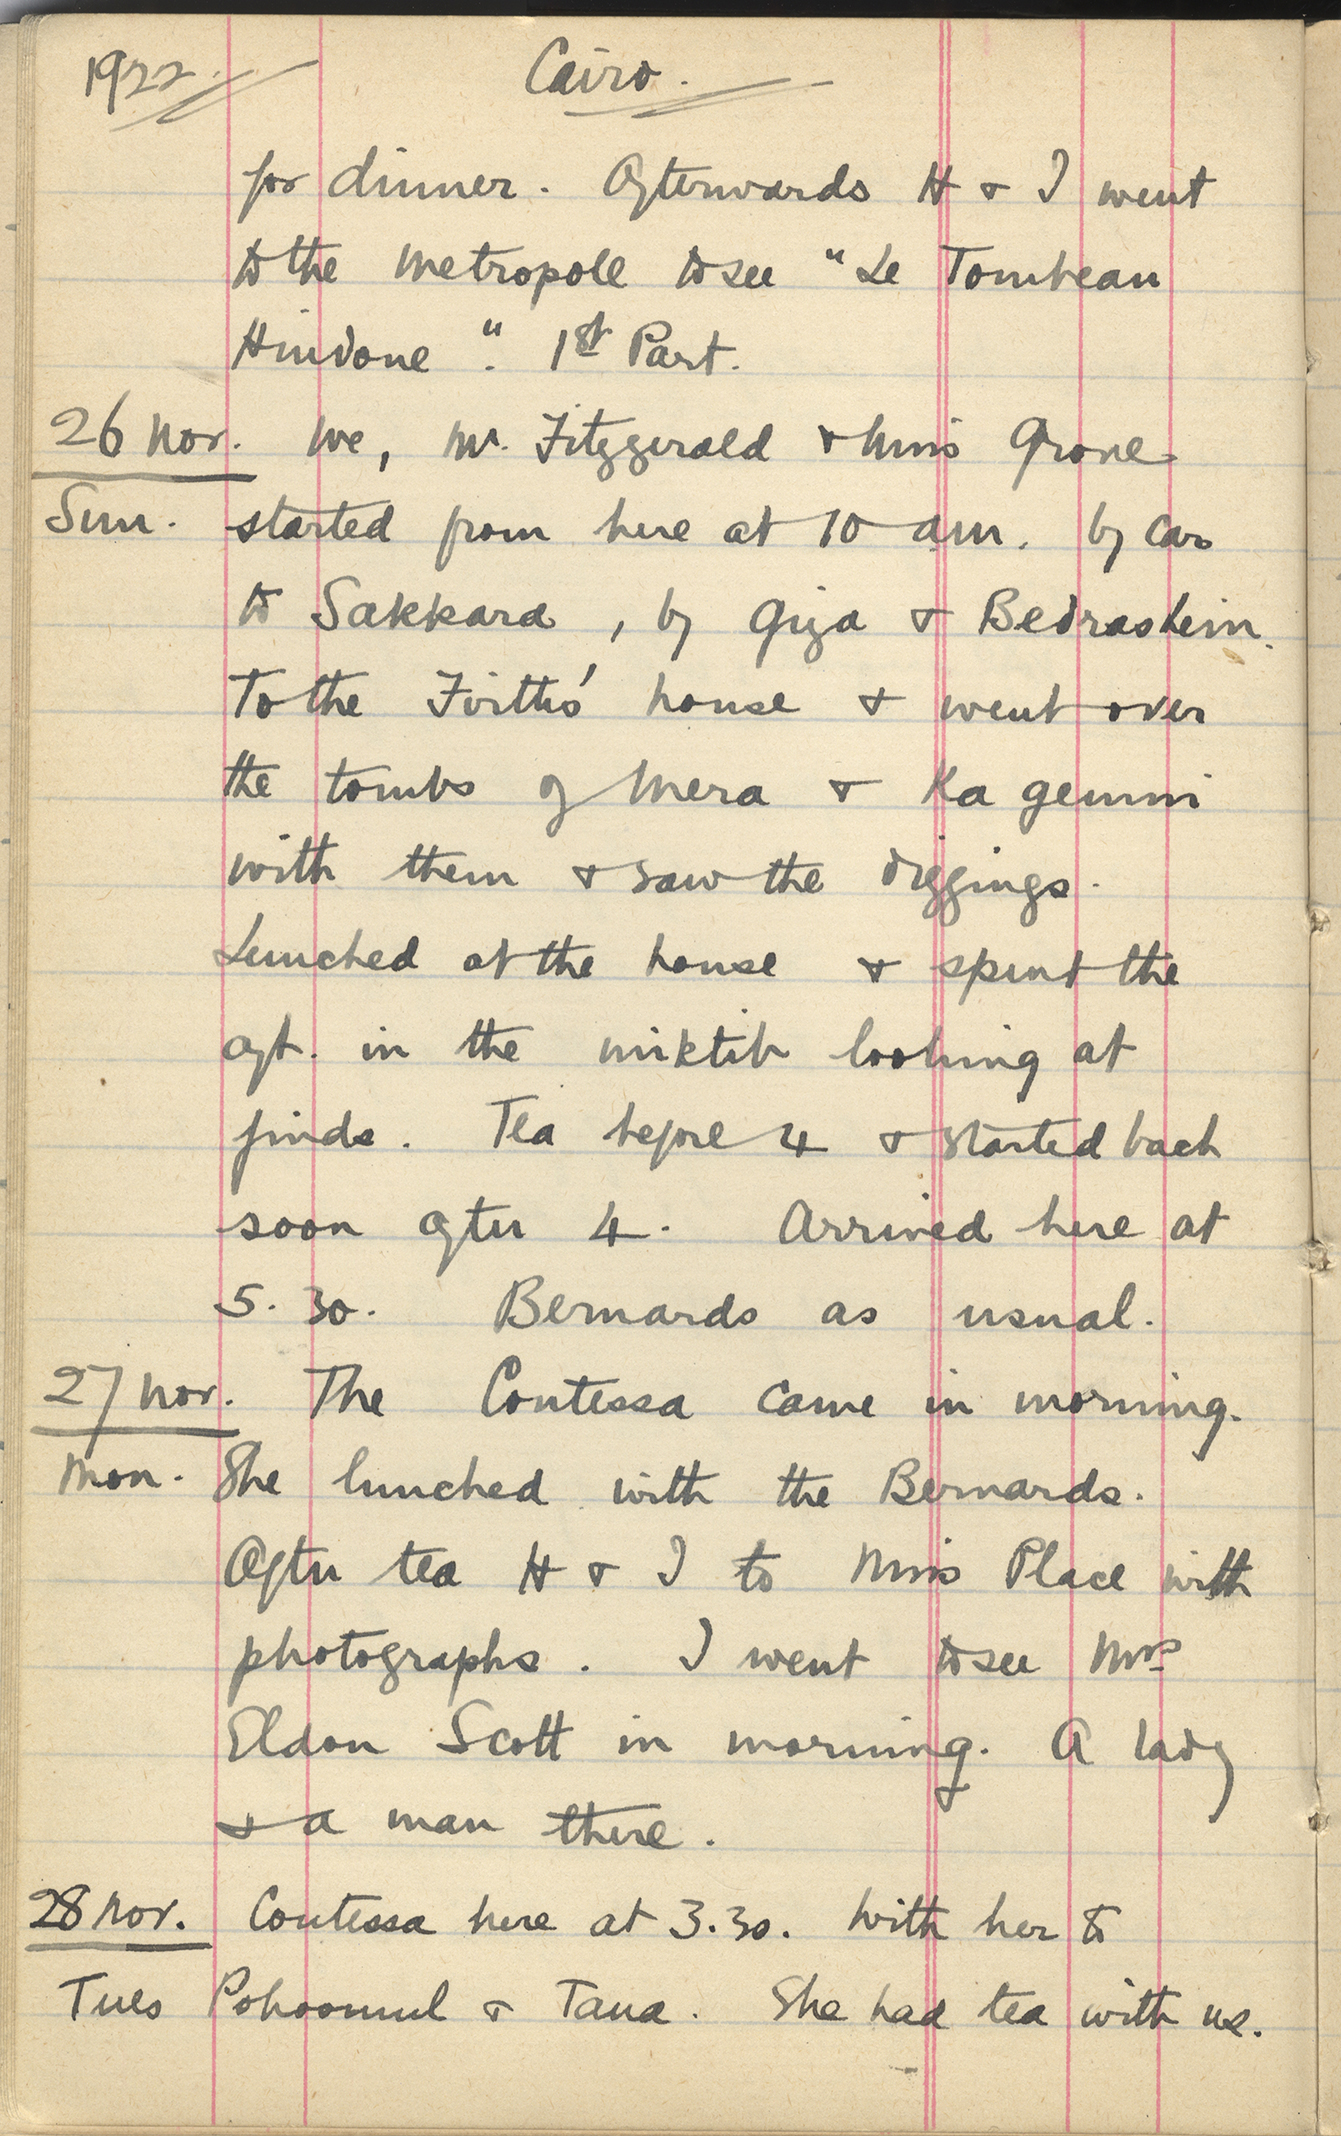 1922. Cairo.
for dinner. Afterwards H & I went
to the Metropole to see "Le Tombeau
Hindone". 1st Part.
26 Nov. We, Mr. Fitzgerald & Miss Grove
Sun. started from here at 10 am. by car
to Sakkara, by Giza & Bedrashein.
To the Firths' house & went over
the tombs of Mera & Ka gemni
with them & saw the diggings.
Lunched at the house & spent the
aft. in the miktib looking at
finds. Tea before 4 & started back
soon after 4. Arrived here at
5.30. Bernards as usual.
27 Nov. The Contessa came in morning.
Mon. She lunched with the Bernards.
After tea H & I to Miss Place with
photographs. I went to see Mrs
Eldon Scott in morning. A lady
& a man there.
28 Nov. Contessa here at 3.30. With her to
Tues Pohoomul & Tana. She had tea with us.